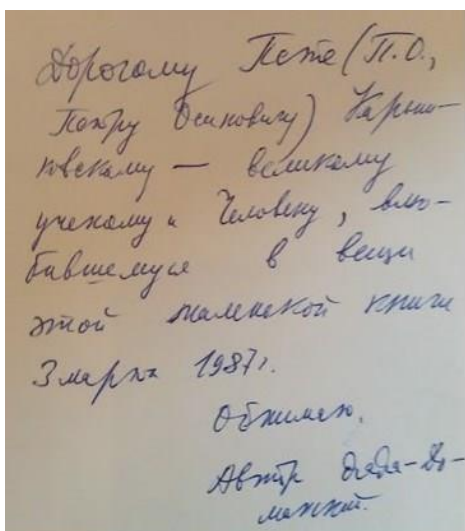 Дорогому Пете (П.О.,
Петру Осиповичу) Карыш-
ковскому — великому
ученому и Человеку, влю-
бившемуся в вещи
этой маленькой книги
3 марта 1987г.
Обнимаю.
Автор дядя-До-
манский.